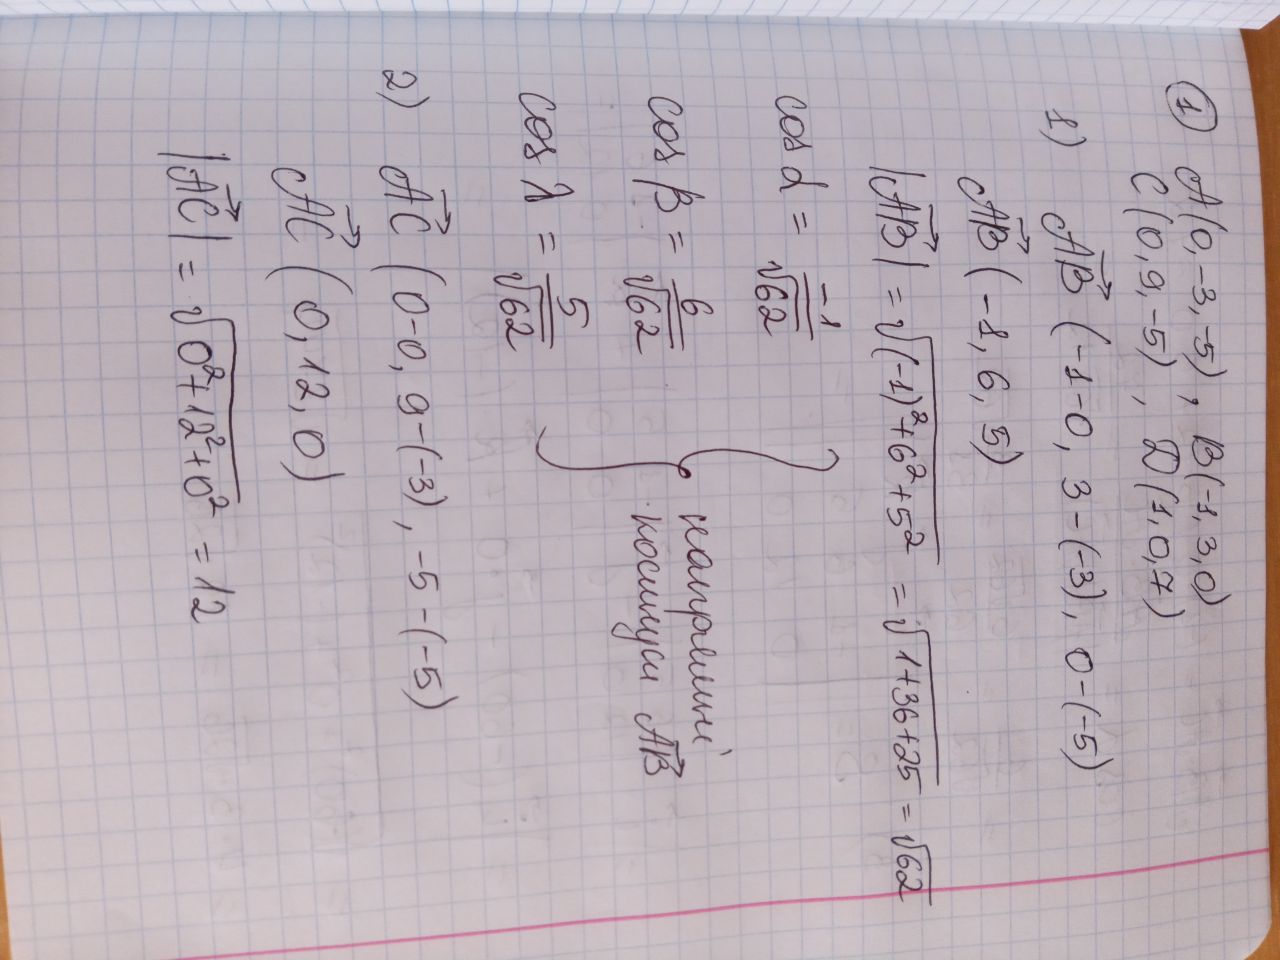 ① A(0, -3, -5), B(-1, 3, 0)
C(0, 9, -5), D(1, 0, 7)
1) \overrightarrow{AB} (-1-0, 3-(-3), 0-(-5))
\overrightarrow{AB} (-1, 6, 5)
|\overrightarrow{AB}| = √((-1)²+6²+5²) = √(1+36+25) = √62
cos α = -1/√62
cos β = 6/√62
cos λ = 5/√62
напрямні
косинуси \overrightarrow{AB}
2) \overrightarrow{AC} (0-0, 9-(-3), -5-(-5))
\overrightarrow{AC} (0, 12, 0)
|\overrightarrow{AC}| = √(0²+12²+0²) = 12